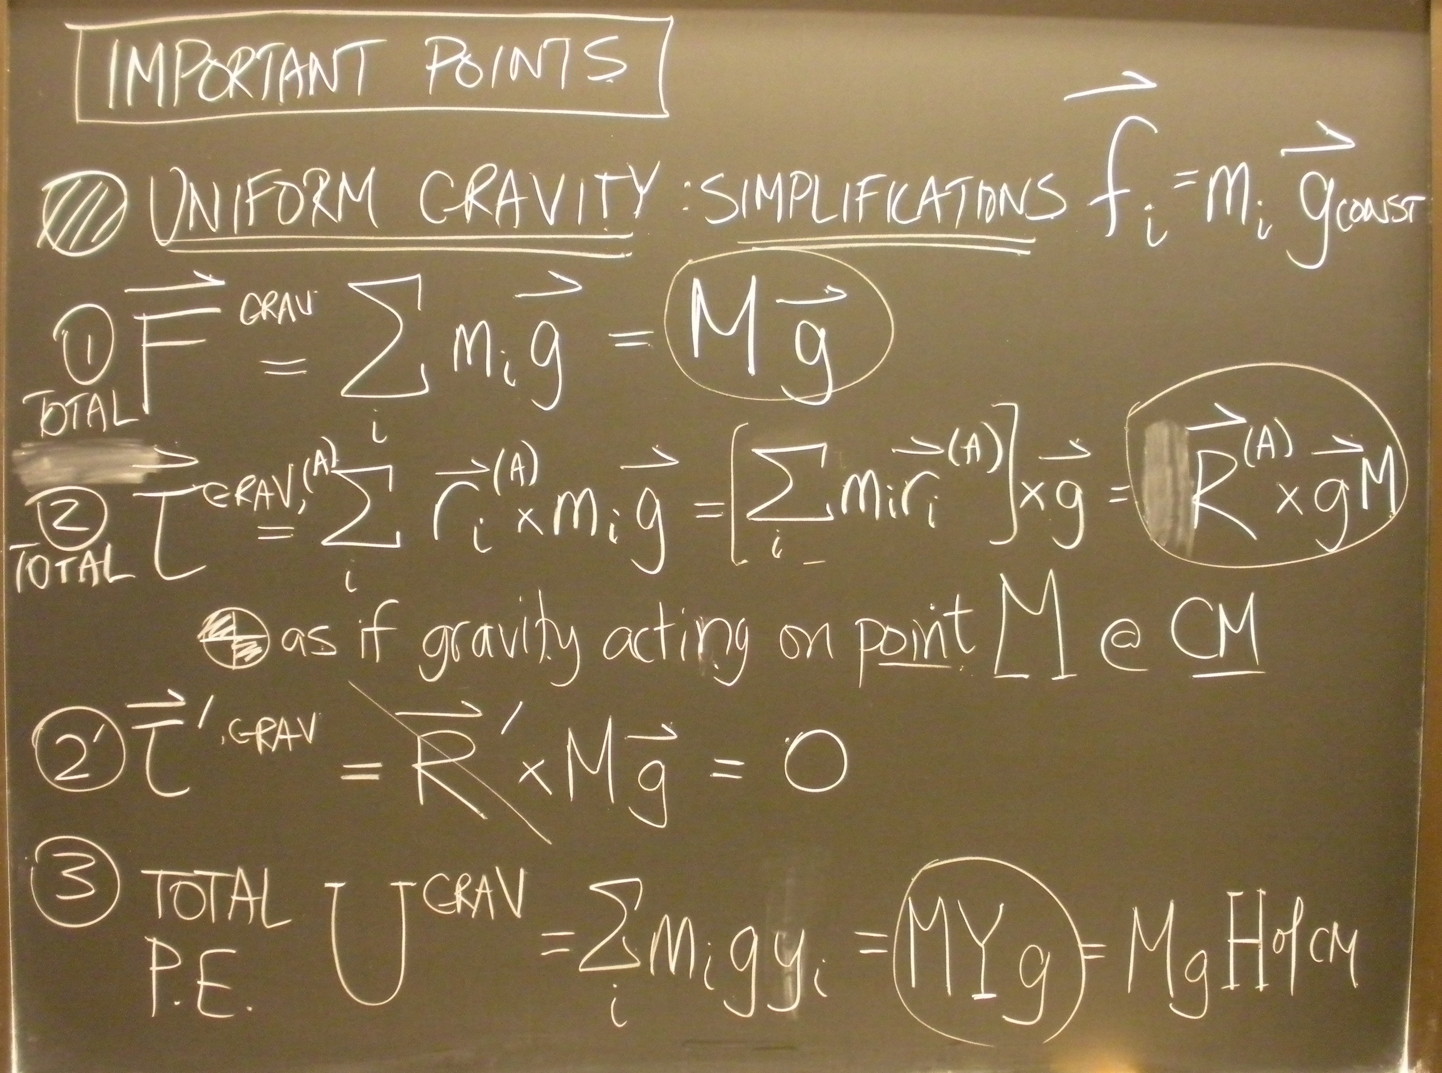 IMPORTANT POINTS
UNIFORM GRAVITY : SIMPLIFICATIONS f⃗ᵢ = mᵢ g⃗ CONST
① TOTAL F⃗ ᴳᴿᴬⱽ = Σᵢ mᵢ g⃗ = M g⃗
② TOTAL τ⃗ ^GRAV,(A) = Σᵢ r⃗ᵢ^(A) × mᵢ g⃗ = [Σᵢ mᵢ r⃗ᵢ^(A)] × g⃗ = R⃗^(A) × g⃗ M
as if gravity acting on point M @ CM
②' τ⃗ ^',GRAV = R⃗' × M g⃗ = 0
③ TOTAL P.E. U^GRAV = Σᵢ mᵢ g yᵢ = M Y g = M g H of CM